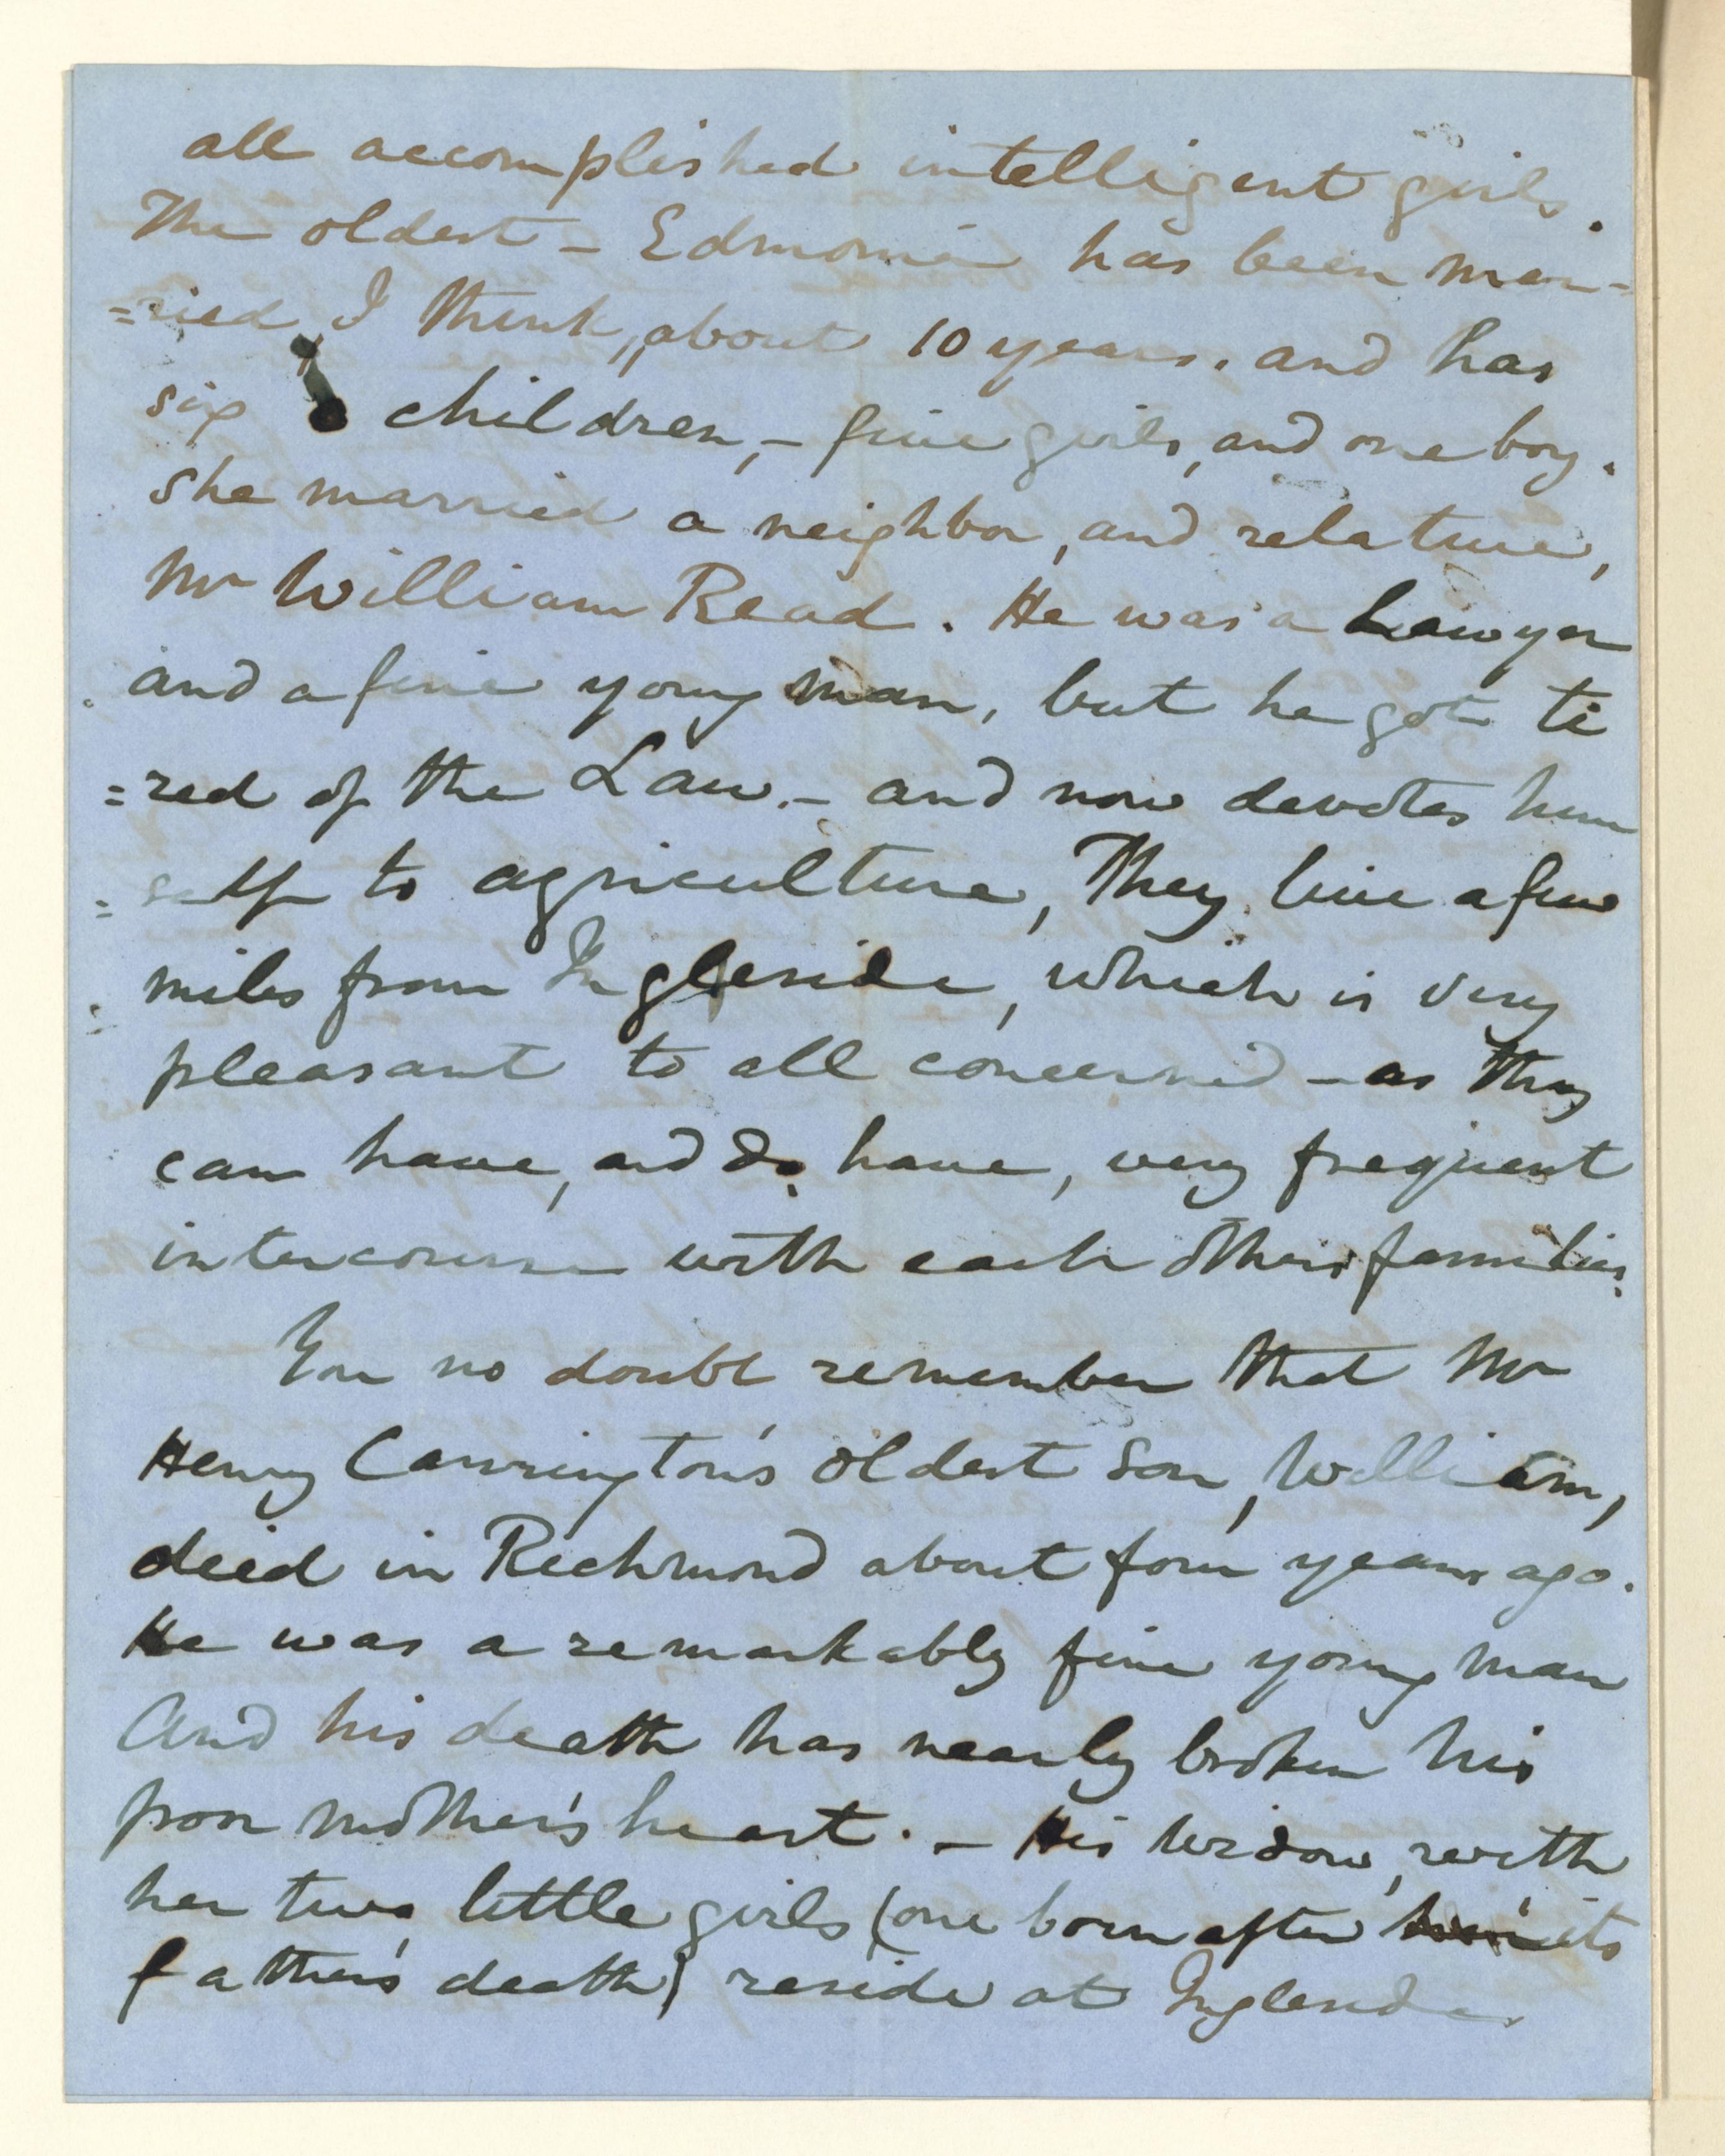 all accomplished intelligent girls.
The oldest – Edmonia has been mar-
=ried, I think, about 10 years, and has
six children, – five girls, and one boy.
She married a neighbor, and relative,
Mr William Read. He was a Lawyer
and a fine young man, but he got ti
=red of the Law. – and now devotes him
=self to agriculture, They live a few
miles from Ingleside, which is very
pleasant to all concerned – as they
can have, and do have, very frequent
intercourse with each others families.
You no doubt remember that Mr
Henry Carrington's oldest Son, William,
died in Richmond about four years ago.
He was a remarkably fine young man
And his death has nearly broken his
poor mother's heart. – His widow, with
her two little girls (one born after its
father's death) reside at Ingleside.